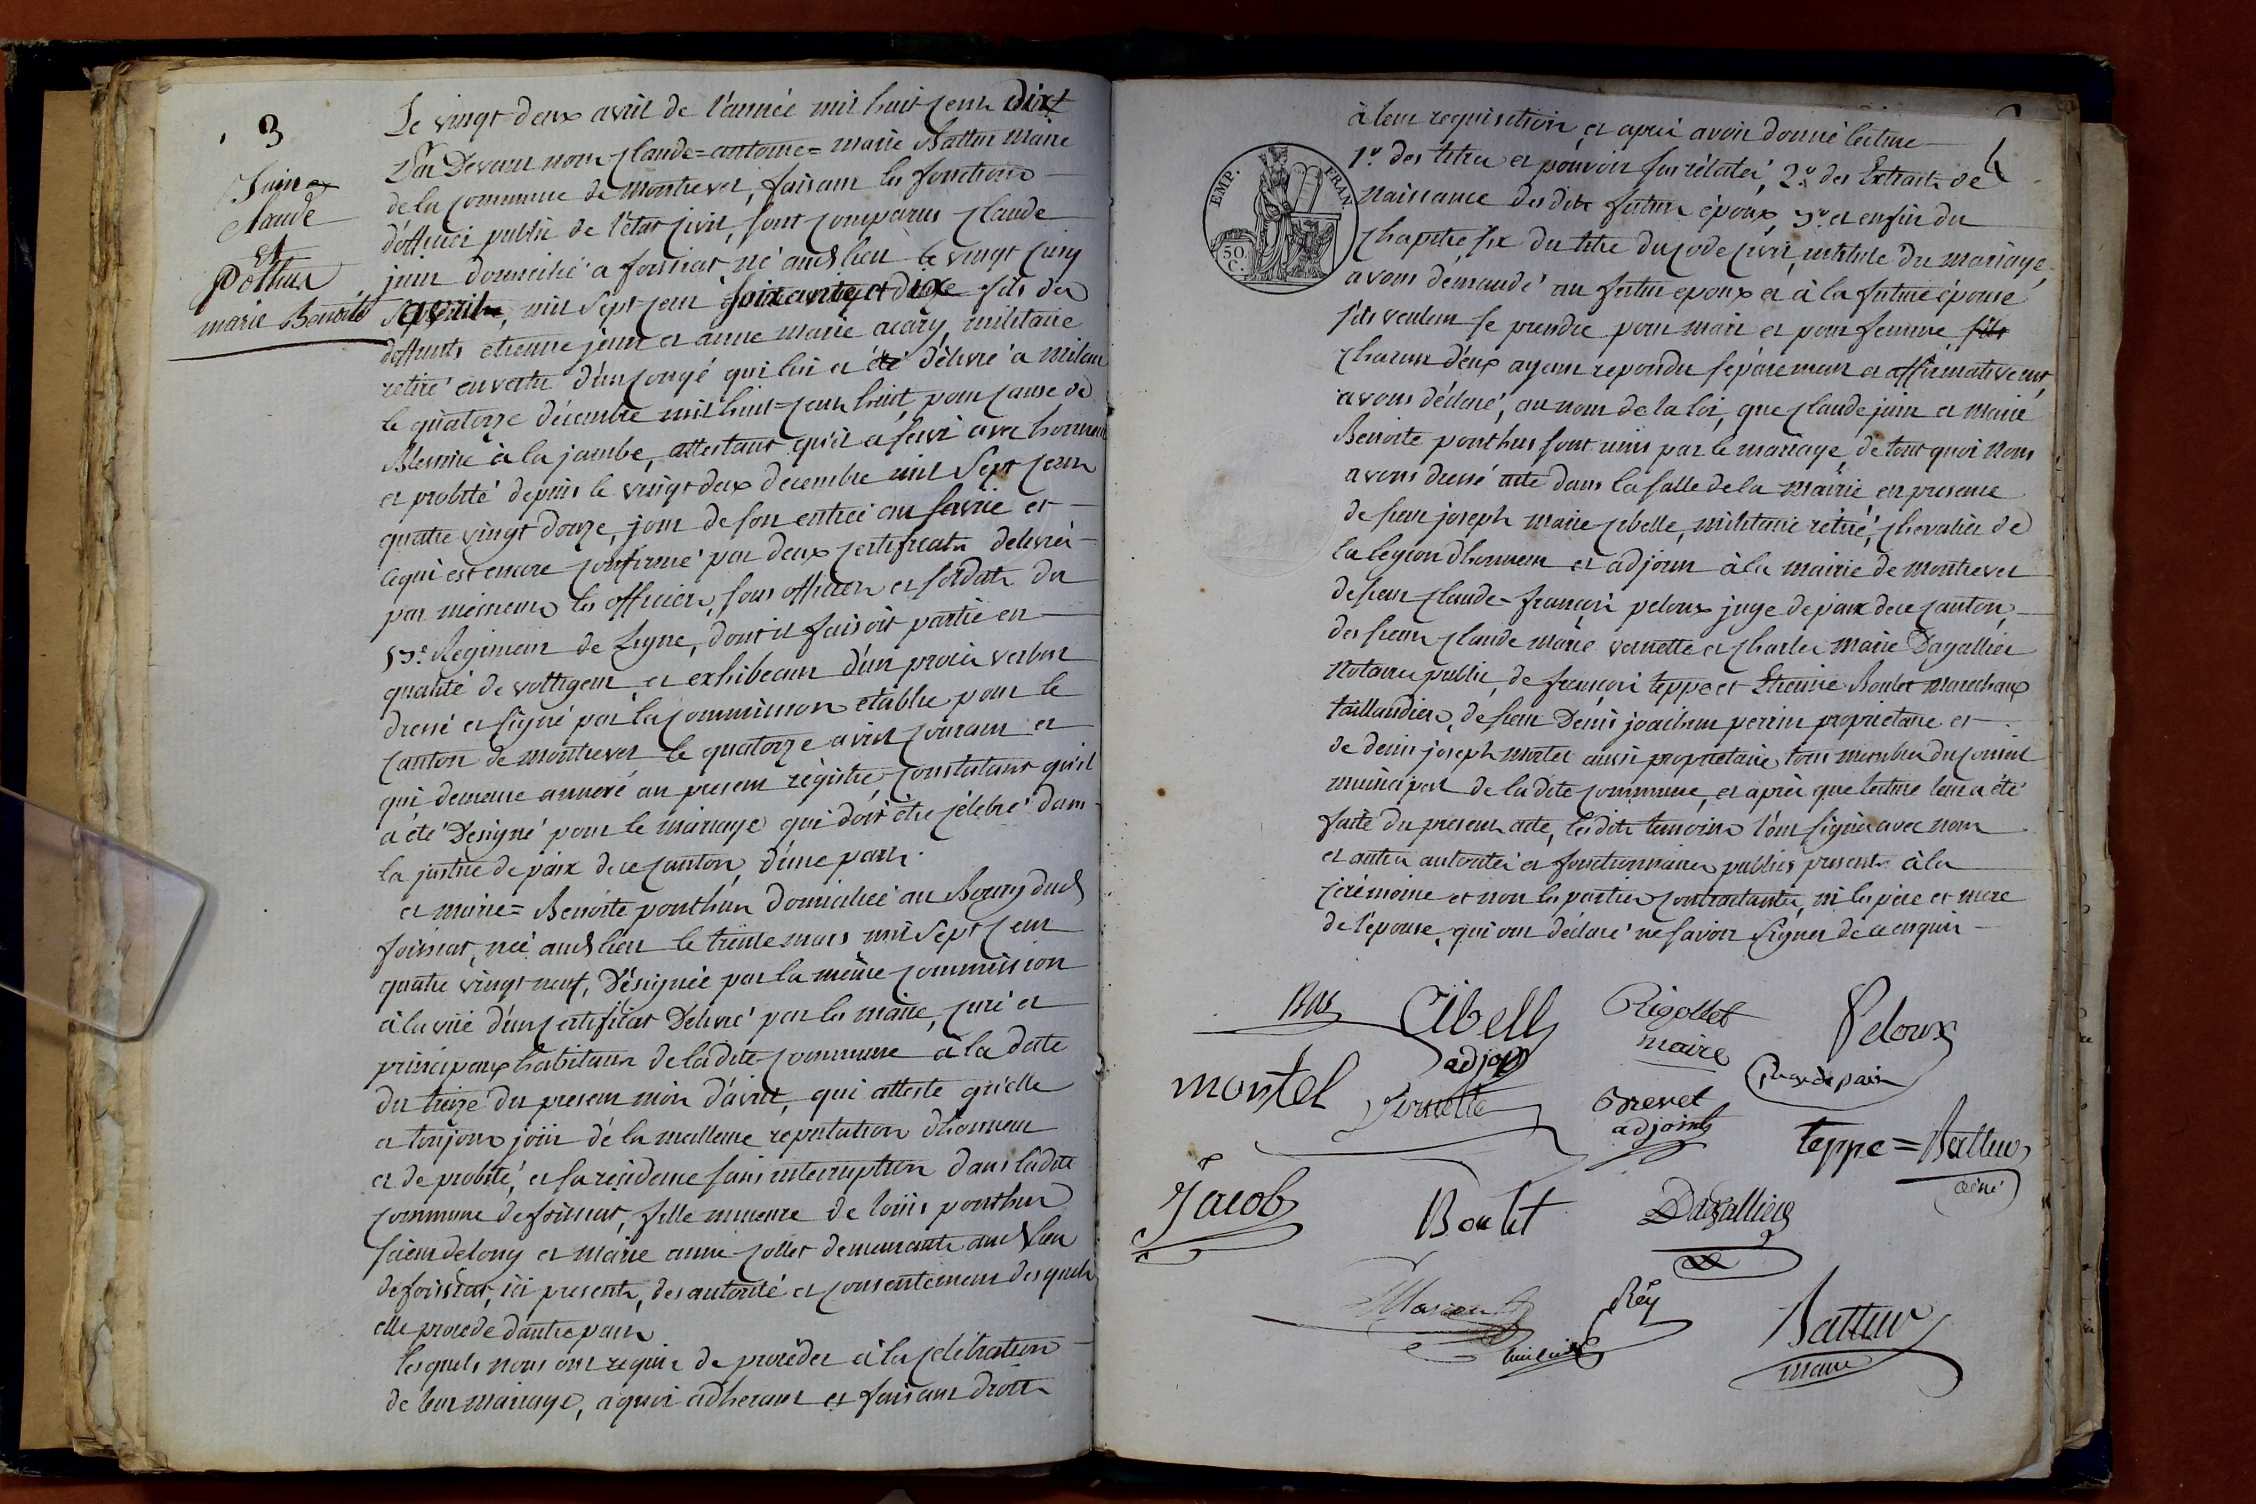 3
Juin
Claude
et
Pothus
marie Benoite
Le vingt deux avril de l'année mil huit cent dix
Par Devant nous Claude=antoine=marie Battur maire
de la commune de montrevel, faisant les fonctions
d'officier public de l'état civil, sont comparus Claude
juin domicilié a foissiat, né audt lieu le vingt cinq
avril, mil sept cent soixante et dix fils des
deffunts etienne juin et anne marie acary, militaire
retiré en vertu d'un congé qui lui a été délivré a milan
le quatorze décembre mil huit=cent huit, pour cause de
Blessure à la jambe, attestant qu'il a servi avec honneur
et probité depuis le vingt deux decembre mil sept cent
quatre vingt douze, jour de son entrée au service et
ce qui est encore confirmé par deux certificats délivrés
par messieurs les officiers, sous officiers et soldats du
Regiment de Ligne, dont il faisoit partie en
qualité de voltigeur, et exhibeant d'un procès verbal
dressé et signé par la commission établie pour le
canton de montrevel le quatorze avril courant et
qui demeure annexé au present régistre, constatant qu'il
a été Désigné pour le mariage qui doit être célébré dans
la justice de paix de ce canton, d'une part.
et marie= Benoite ponthus domiciliée au Bourg dudt
foissiat, née audt lieu le trente mars mil sept cent
quatre vingt neuf, Désignée par la même commission
à la vüe d'un certificat Délivré par les maire, curé et
principaux habitans de ladite commune à la date
du treize du present mois d'avril, qui atteste qu'elle
a toujours joüi de la meilleure reputation d'honneur
et de probité, et sa résidence sans interruption dans ladite
commune de foissiat, fille mineure de loüis ponthus
scieur de long et marie anne collet demeurants audt lieu
de foissiat, ici presents, des autorité et consentement desquels
elle procède d'autre part
lesquels nous ont requis de procéder à la célébration
de leur mariage, a quoi adherant et faisant droit
à leur requisition, et après avoir donné lecture
1°. des titres et pouvoir sus rélatés, 2°. des Extraits de
naissance des dits futurs époux, 3°. et enfin du
chapitre six du titre du code civil, intitulé du mariage,
avons demandé au futur epoux et à la future épouse
s'ils veulent se prendre pour mari et pour femme
chacun d'eux ayant repondu séparement et affirmativement,
avons déclaré, au nom de la loi, que Claude juin et marie
Benoite ponthus sont unis par le mariage, de tout quoi nous
avons dressé acte dans la salle de la mairie en presence
de sieur joseph marie cibelle, militaire rétiré, chevalier de
la legion d'honneur et adjoint à la mairie de montrevel
de sieur Claude=françois peloux juge de paix de ce canton,
des sieurs Claude marie vernette et Charles marie Dagallier
Notaires public, de françois teppe et Etienne Boulet marechaux
taillandiers, de sieur Denis joachim perrin proprietaire et
de denis joseph mortel aussi proprietaire, tous membres du conseil
municipal de ladite commune, et après que lecture leur a été
faite du present acte, lesdits temoins l'ont signé avec nous
et autres autorités et fonctionnaires publics presents à la
cérémonie et non les parties contractantes, ni les père et mere
de l'epouse, qui ont déclaré ne savoir signer de ce enquis
EMP. FRAN.
50 C.
Cibell
adjoint
Rigollet
maire
Peloux
juge de paix
montel
Vernette
Brevet
adjoint
teppe = Battur
ainé
Jacob
Boulet
Dagallier
Rey
Battur
maire